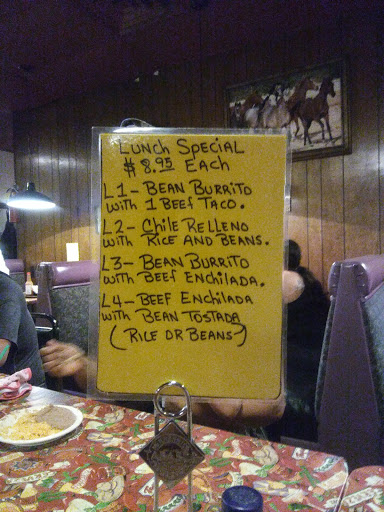 Lunch Special
$8.95 Each
L1- Bean Burrito
with 1 Beef Taco.
L2- Chile Relleno
with Rice and Beans.
L3- Bean Burrito
with Beef Enchilada.
L4- Beef Enchilada
with Bean Tostada
(Rice or Beans)